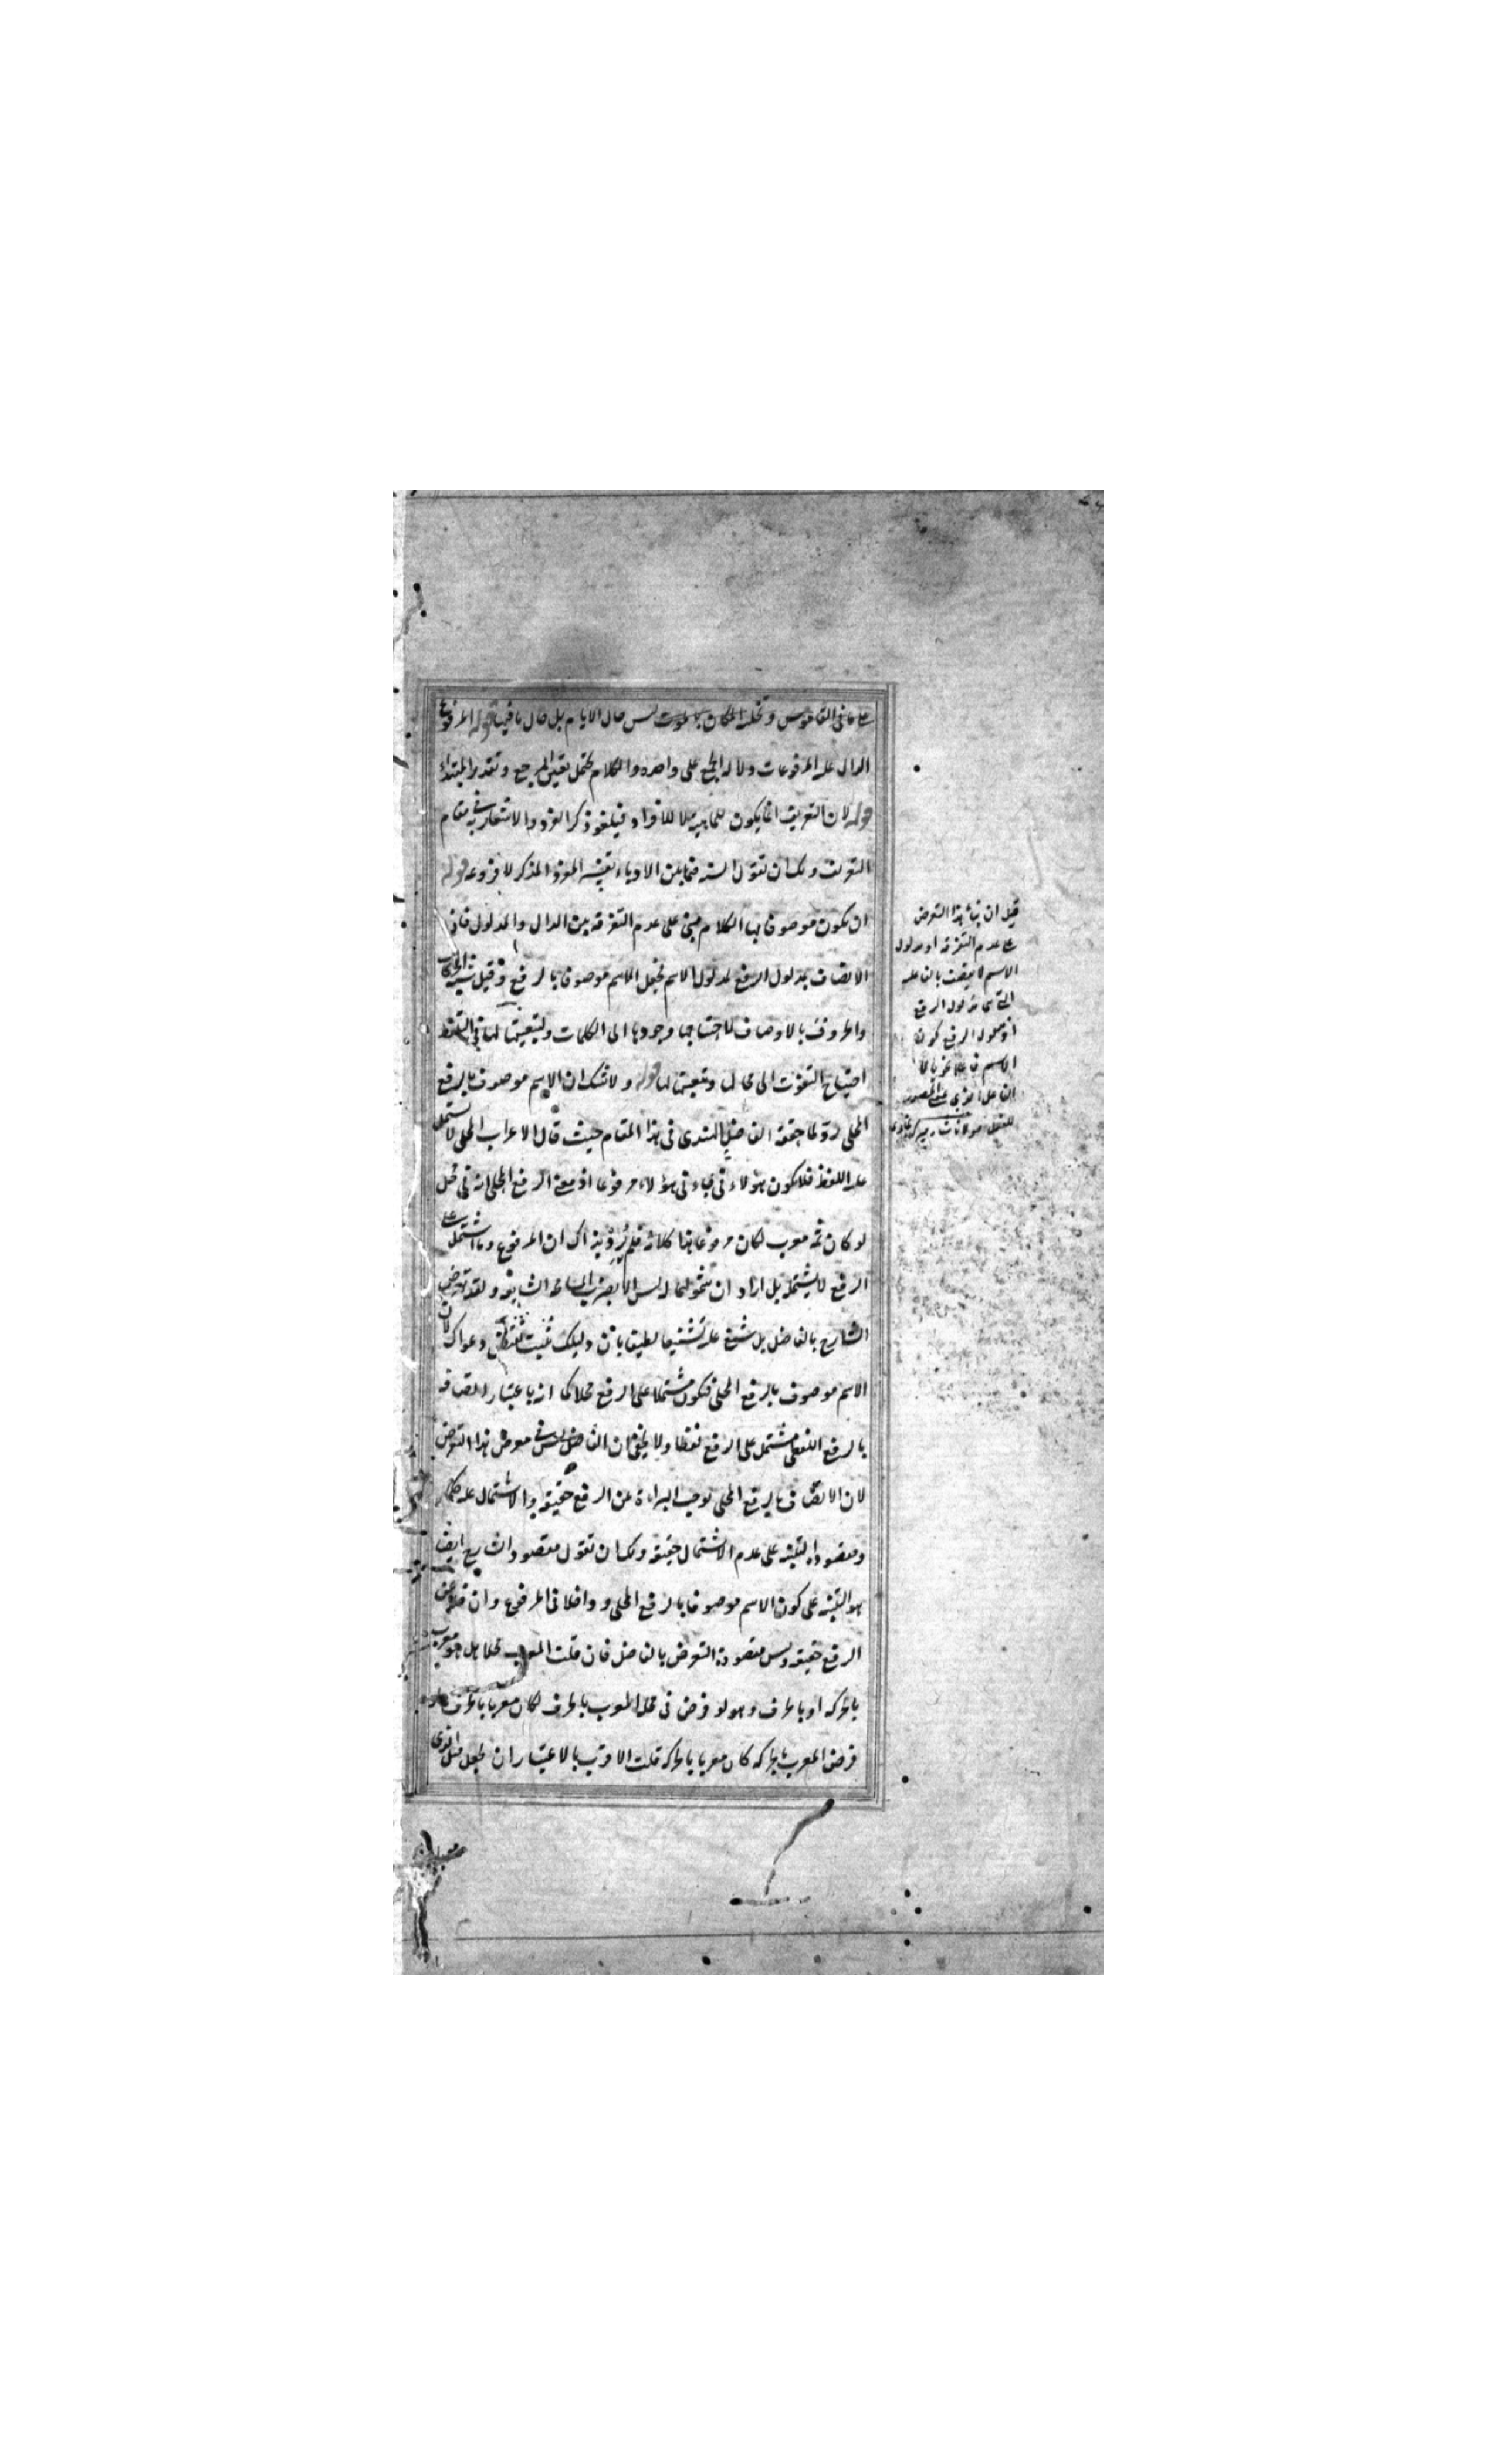 على ما في القاموس و تخلية المكان بالموت ليس حال الايام بل حال ما فيها قوله المرفوع
الدال عليه المرفوعات دلالة الجمع على واحده والكلام يحتمل تعيين المرجع و تقدير المبتداء
قوله لان التعريف انما يكون للماهية لا للافراد فيلغو ذكر الفرد والاشعار به في مقام
التعريف ولك ان تقول المذكر لا فرد عه قوله
ان يكون موصوفا بها الكلام مبنى على عدم التفرقة بين الدال والمدلول فان
الاتصاف بمدلول الرفع لمدلول الاسم فجعل الاسم موصوفا بالرفع وقيل شبه الحركات
والحروف بالاوصاف لاحتياجها وجودها الى الكلمات ولتبعيتها لها في التلفظ
احتياج النعوت الى محالها وتبعيتها لها قوله ولا شك ان الاسم موصوف بالرفع
المحلى رد لما حققه الفاضل الهندى فى هذا المقام حيث قال الاعراب المحلى لا يشتمل
عليه اللفظ فلا يكون هؤلاء فى جاءنى هؤلاء مرفوعا اذ معنى الرفع المحلى انه فى محل
لو كان ثمه معرب لكان مرفوعا هذا كلامه فلم يرد بذاك ان المرفوع وما اشتمل على
الرفع لا يشتمله بل اراد ان
الشارح بالفاضل بل شنع عليه تشنيعا لطيفا بان دليلك يثبت نقيض دعواك لان
الاسم موصوف بالرفع المحلى فيكون مشتملا على الرفع محلا كما انه باعتبار اتصافه
بالرفع اللفظى مشتمل على الرفع لفظا ولا يخفى ان الفاضل ليس فى معرض هذا التعرض
لان الاتصاف بالرفع المحلى يوجب البراءة عن الرفع حقيقة والاشتمال عليه حكما
ومقصوده التنبيه على عدم الاشتمال حقيقة ولك ان تقول مقصود الشارح ايضا
هو التنبيه على كون الاسم موصوفا بالرفع المحلى وداخلا فى المرفوع وان خلا عن
الرفع حقيقة وليس مقصوده التعرض بالفاضل فان قلت المعرب محلا هل هو معرب
بالحركة او بالحرف وهو لو فرض فى محله المعرب بالحرف لكان معربا بالحرف ولو
فرض المعرب بالحركة كان معربا بالحركة قلت الاقرب بالاعتبار ان يجعل
قيل ان بناء هذا التعرض
على عدم التفرقة او مدلول
الاسم لا يتصف بالفاعلية
التى هى مدلول الرفع
او مدلول الرفع كون
الاسم فاعلا نحويا لا